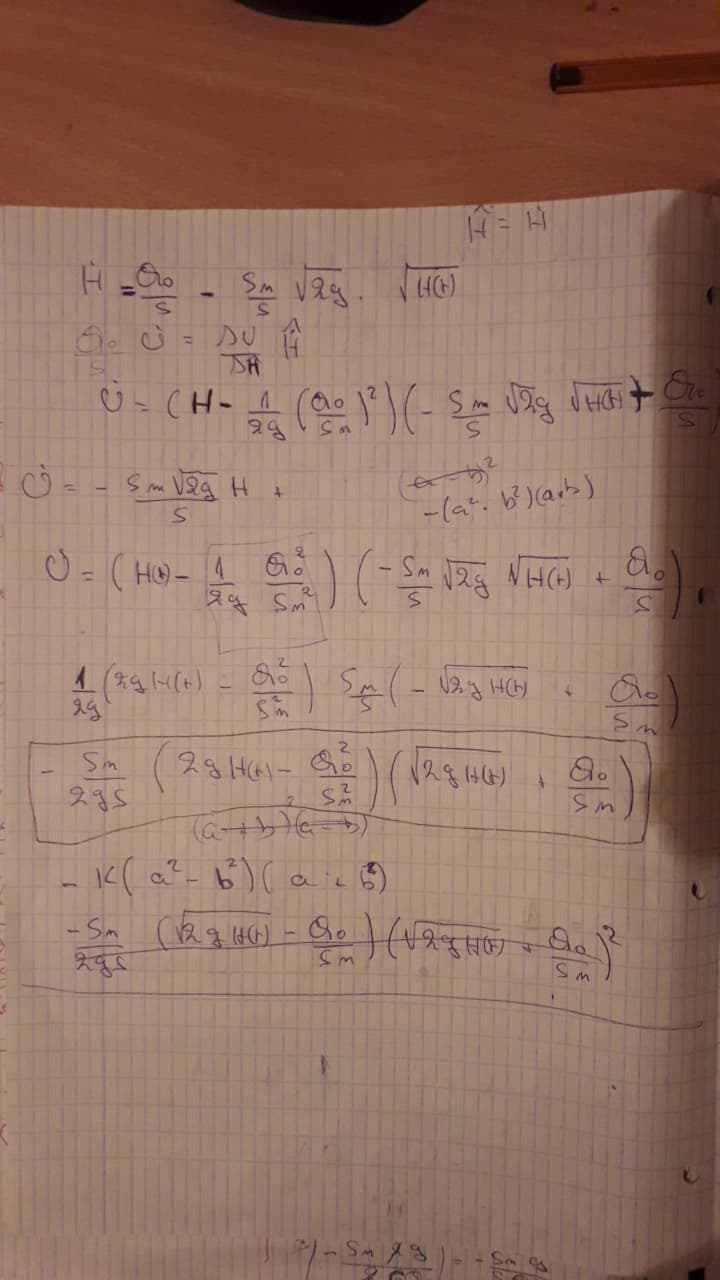 Ĥ = Ḣ
Ḣ = Q₀/S - Sm/S √2g · √H(t)
Q₀/S U̇ = ΔU/ΔH Ĥ
U̇ = (H - 1/2g (Q₀/Sm)²)(- Sm/S √2g √H(t) + Q₀/S
U̇ = - Sm√2g/S H +
(a - b)²
-(a² - b²)(a+b)
U̇ = (H(t) - 1/2g Q₀²/Sm²) (- Sm/S √2g √H(t) + Q₀/S)
1/2g (2gH(t) - Q₀²/S²m) Sm/S (- √2gH(t) + Q₀/Sm)
- Sm/2gS (2gH(t) - Q₀²/Sm²)(√2gH(t) + Q₀/Sm)
(a + b)²(a - b)
- K(a² - b²)(a + b)
-Sm/2gS (√2gH(t) - Q₀/Sm)(√2gH(t) + Q₀/Sm)²